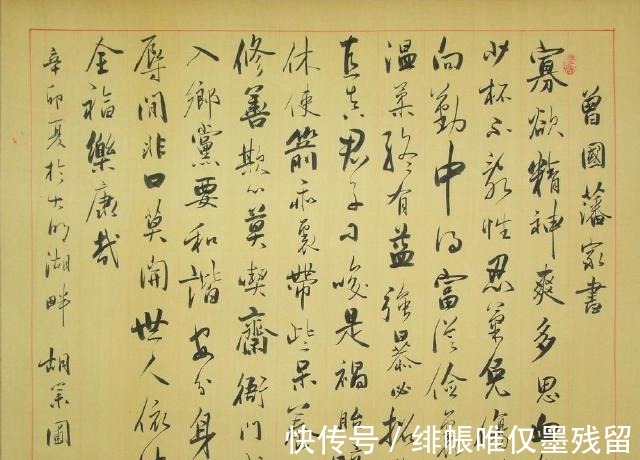 曾國藩家書
寡欲精神爽多思血
少杯不亂性忍氣免傷
向勤中得富從儉裏
溫柔終有益強暴必招
真君子刁唆是禍胎
休使箭乖裏帶些呆養
修善欺心莫喫齋衙門
入鄉黨要和諧安分身
辱閒非口莫開世人依
全福樂康哉
辛卯夏於大明湖畔 胡 圖
快传号／緋帳唯仅墨残留